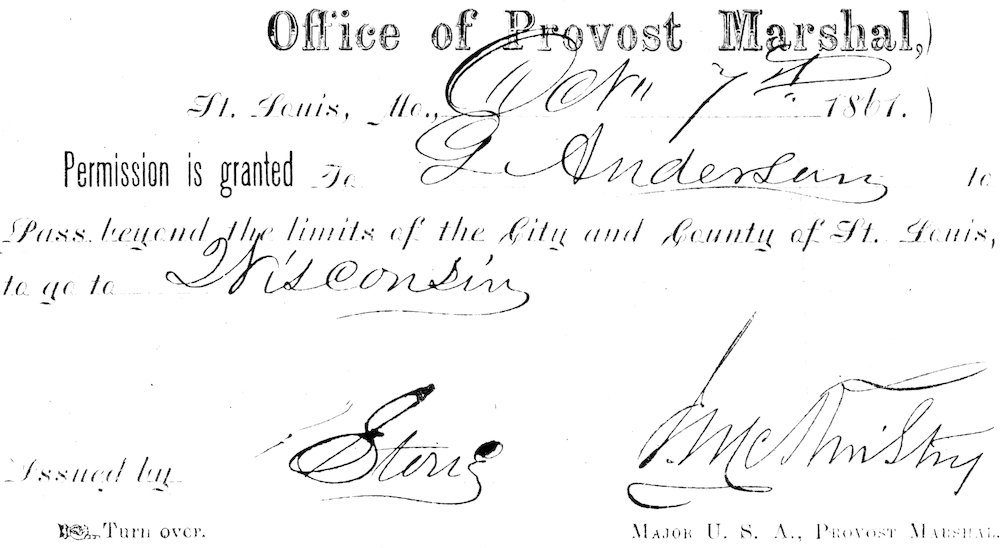 Office of Provost Marshal,)
St. Louis, Mo., Oct 7th 1861.)
Permission is granted To G Anderson to
Pass beyond the limits of the City and County of St. Louis,
to go to Wisconsin
Issued by J. McKinstry
Turn over. Major U. S. A., Provost Marshal.